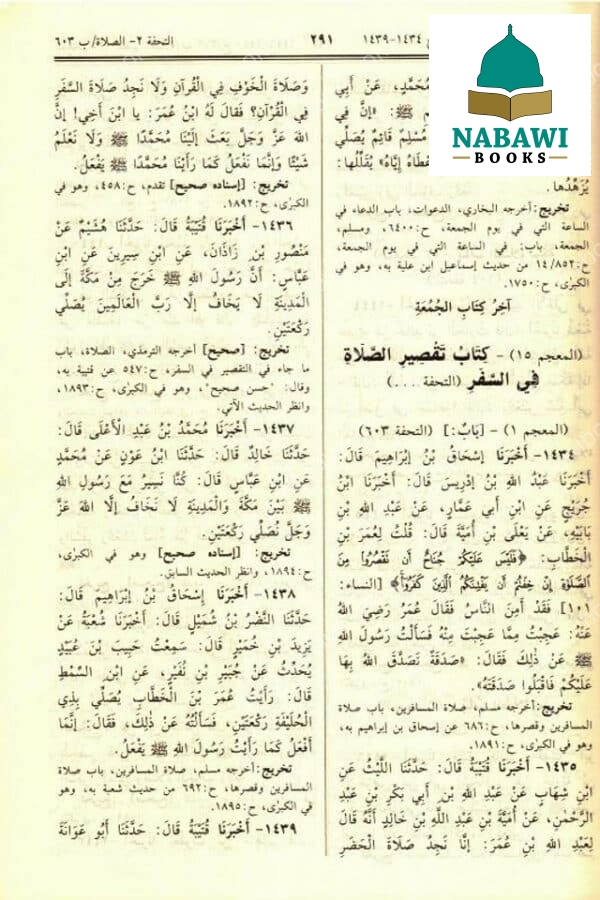 ١٤٣٤-١٤٣٩
٢٩١
التحفة ٢- الصلاة/ ب ٦٠٣
NABAWI
BOOKS
مُحَمَّدٍ، عَنْ أَبِي
ﷺ: «إِنَّ فِي
مُسْلِمٌ قَائِمٌ يُصَلِّي
إِيَّاهُ» يُقَلِّلُهَا:
يُزَهِّدُهَا.
تخريج: أخرجه البخاري، الدعوات، باب الدعاء في
الساعة التي في يوم الجمعة، ح:٦٤٠٠، ومسلم،
الجمعة، باب: في الساعة التي في يوم الجمعة،
ح:١٤/٨٥٢ من حديث إسماعيل ابن علية به، وهو في
الكبرى، ح:١٧٥٠.
آخِرُ كِتَابِ الجُمُعَةِ
(المعجم ١٥) - كِتَابُ تَقْصِيرِ الصَّلَاةِ
فِي السَّفَرِ (التحفة . . . .)
(المعجم ١) - [بَابٌ:] (التحفة ٦٠٣)
١٤٣٤- أَخْبَرَنَا إِسْحَاقُ بْنُ إِبْرَاهِيمَ قَالَ:
أَخْبَرَنَا عَبْدُ اللهِ بْنُ إِدْرِيسَ قَالَ: أَخْبَرَنَا ابْنُ
جُرَيْجٍ عَنِ ابْنِ أَبِي عَمَّارٍ، عَنْ عَبْدِ اللهِ بْنِ
بَابَيْهِ، عَنْ يَعْلَى بْنِ أُمَيَّةَ قَالَ: قُلْتُ لِعُمَرَ بْنِ
الْخَطَّابِ: ﴿فَلَيْسَ عَلَيْكُمْ جُنَاحٌ أَن تَقْصُرُوا مِنَ
الصَّلَوٰةِ إِنْ خِفْتُمْ أَن يَفْتِنَكُمُ الَّذِينَ كَفَرُوٓا﴾ [النساء:
١٠١] فَقَدْ أَمِنَ النَّاسُ فَقَالَ عُمَرُ رَضِيَ اللهُ
عَنْهُ: عَجِبْتُ مِمَّا عَجِبْتَ مِنْهُ فَسَأَلْتُ رَسُولَ اللهِ
ﷺ عَنْ ذٰلِكَ فَقَالَ: «صَدَقَةٌ تَصَدَّقَ اللهُ بِهَا
عَلَيْكُمْ فَاقْبَلُوا صَدَقَتَهُ».
تخريج: أخرجه مسلم، صلاة المسافرين، باب صلاة
المسافرين وقصرها، ح:٦٨٦ عن إسحاق بن إبراهيم به،
وهو في الكبرى، ح:١٨٩١.
١٤٣٥- أَخْبَرَنَا قُتَيْبَةُ قَالَ: حَدَّثَنَا اللَّيْثُ عَنِ
ابْنِ شِهَابٍ عَنْ عَبْدِ اللهِ بْنِ أَبِي بَكْرِ بْنِ عَبْدِ
الرَّحْمٰنِ، عَنْ أُمَيَّةَ بْنِ عَبْدِ اللهِ بْنِ خَالِدٍ أَنَّهُ قَالَ
لِعَبْدِ اللهِ بْنِ عُمَرَ: إِنَّا نَجِدُ صَلَاةَ الْحَضَرِ
وَصَلَاةَ الْخَوْفِ فِي الْقُرْآنِ وَلَا نَجِدُ صَلَاةَ السَّفَرِ
فِي الْقُرْآنِ؟ فَقَالَ لَهُ ابْنُ عُمَرَ: يا ابْنَ أَخِي! إِنَّ
اللهَ عَزَّ وَجَلَّ بَعَثَ إِلَيْنَا مُحَمَّدًا ﷺ وَلَا نَعْلَمُ
شَيْئًا وَإِنَّمَا نَفْعَلُ كَمَا رَأَيْنَا مُحَمَّدًا ﷺ يَفْعَلُ.
تخريج: [إسناده صحيح] تقدم، ح:٤٥٨، وهو في
الكبرى، ح:١٨٩٢.
١٤٣٦- أَخْبَرَنَا قُتَيْبَةُ قَالَ: حَدَّثَنَا هُشَيْمٌ عَنْ
مَنْصُورِ بْنِ زَاذَانَ، عَنِ ابْنِ سِيرِينَ عَنِ ابْنِ
عَبَّاسٍ: أَنَّ رَسُولَ اللهِ ﷺ خَرَجَ مِنْ مَكَّةَ إِلَى
الْمَدِينَةِ لَا يَخَافُ إِلَّا رَبَّ الْعَالَمِينَ يُصَلِّي
رَكْعَتَيْنِ.
تخريج: [صحيح] أخرجه الترمذي، الصلاة، باب
ما جاء في التقصير في السفر، ح:٥٤٧ عن قتيبة به،
وقال: "حسن صحيح"، وهو في الكبرى، ح:١٨٩٣،
وانظر الحديث الآتي.
١٤٣٧- أَخْبَرَنَا مُحَمَّدُ بْنُ عَبْدِ الْأَعْلَى قَالَ:
حَدَّثَنَا خَالِدٌ قَالَ: حَدَّثَنَا ابْنُ عَوْنٍ عَنْ مُحَمَّدٍ
عَنِ ابْنِ عَبَّاسٍ قَالَ: كُنَّا نَسِيرُ مَعَ رَسُولِ اللهِ
ﷺ بَيْنَ مَكَّةَ وَالْمَدِينَةِ لَا نَخَافُ إِلَّا اللهَ عَزَّ
وَجَلَّ نُصَلِّي رَكْعَتَيْنِ.
تخريج: [إسناده صحيح] وهو في الكبرى،
ح:١٨٩٤، وانظر الحديث السابق.
١٤٣٨- أَخْبَرَنَا إِسْحَاقُ بْنُ إِبْرَاهِيمَ قَالَ:
حَدَّثَنَا النَّضْرُ بْنُ شُمَيْلٍ قَالَ: أَخْبَرَنَا شُعْبَةُ عَنْ
يَزِيدَ بْنِ خُمَيْرٍ قَالَ: سَمِعْتُ حَبِيبَ بْنَ عُبَيْدٍ
يُحَدِّثُ عَنْ جُبَيْرِ بْنِ نُفَيْرٍ، عَنِ ابْنِ السِّمْطِ
قَالَ: رَأَيْتُ عُمَرَ بْنَ الْخَطَّابِ يُصَلِّي بِذِي
الْحُلَيْفَةِ رَكْعَتَيْنِ، فَسَأَلْتُهُ عَنْ ذٰلِكَ، فَقَالَ: إِنَّمَا
أَفْعَلُ كَمَا رَأَيْتُ رَسُولَ اللهِ ﷺ يَفْعَلُ.
تخريج: أخرجه مسلم، صلاة المسافرين، باب صلاة
المسافرين وقصرها، ح:٦٩٢ من حديث شعبة به، وهو
في الكبرى، ح:١٨٩٥.
١٤٣٩- أَخْبَرَنَا قُتَيْبَةُ قَالَ: حَدَّثَنَا أَبُو عَوَانَةَ